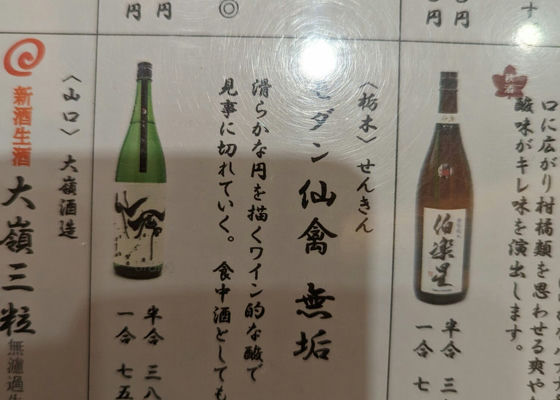 円
円
口に広がり柑橘類を思わせる爽や
酸味がキレ味を演出します。
伯楽星
半合
一合 七
〈栃木〉 せんきん
モダン仙禽 無垢
滑らかな円を描くワイン的な酸で
見事に切れていく。 食中酒としても
半合 三八
一合 七五
◎
円
円
〈山口〉 大嶺酒造
新酒生酒
大嶺三粒
無濾過生